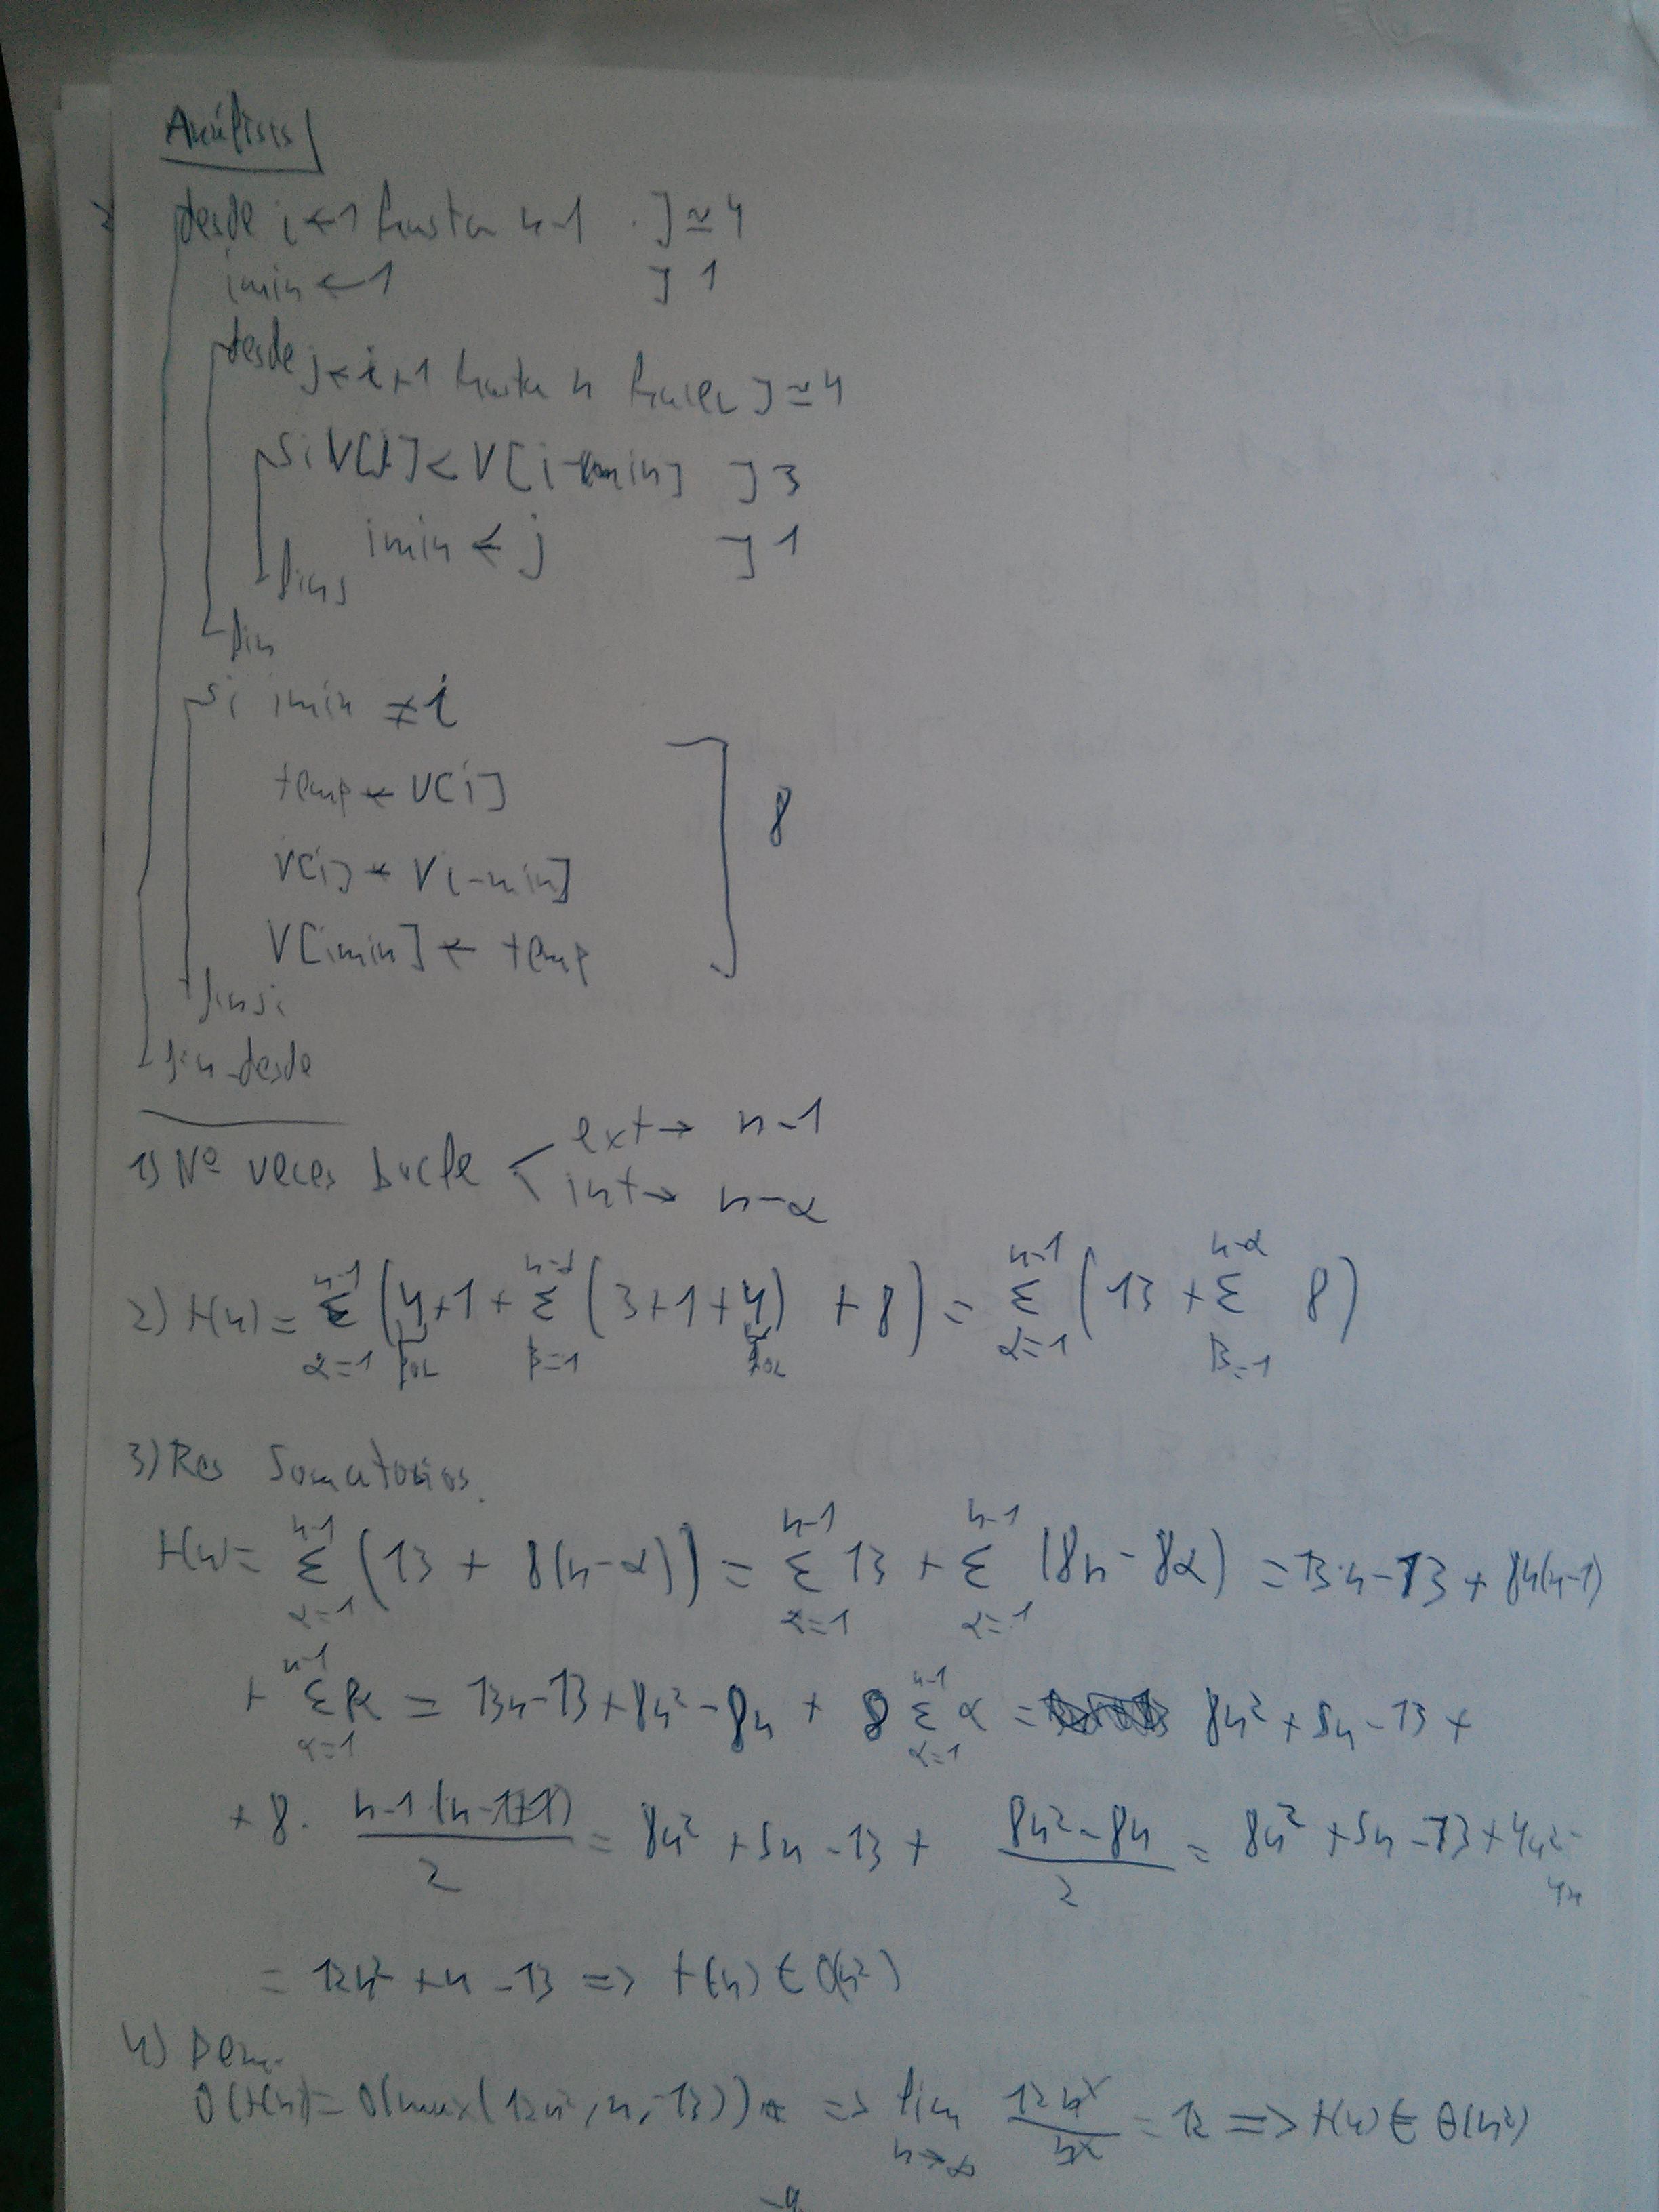 Análisis
desde i ← 1 hasta n-1 ] ≃ 4
imin ← 1 ] 1
desde j ← i+1 hasta n hacer ] ≃ 4
si V[j] < V[i-min] ] 3
imin ← j ] 1
finsi
fin
si imin ≠ i
temp ← V[i]
V[i] ← V[i-min] ] 8
V[imin] ← temp
finsi
fin-desde
1) Nº veces bucle < ext → n-1
int → n-α
2) t(n) = Σ_{α=1}^{n-1} (4+1 + Σ_{β=1}^{n-α} (3+1+4) + 8) = Σ_{α=1}^{n-1} (13 + Σ_{β=1}^{n-α} 8)
3) Res Sumatorios.
t(n) = Σ_{α=1}^{n-1} (13 + 8(n-α)) = Σ_{α=1}^{n-1} 13 + Σ_{α=1}^{n-1} (8n - 8α) = 13n-13 + 8n(n-1)
+ Σ_{α=1}^{n-1} 8α = 13n-13+8n²-8n + 8 Σ_{α=1}^{n-1} α = 8n²+5n-13+
+ 8 · n-1·(n-1+1)/2 = 8n²+5n-13 + (8n²-8n)/2 = 8n²+5n-13+4n²-
4n
= 12n²+n-13 => t(n) ∈ O(n²)
4) Dem.
O(t(n)) = O(max(12n², n, -13)) => lim_{n→∞} 12n²/n² = 12 => t(n) ∈ Θ(n²)